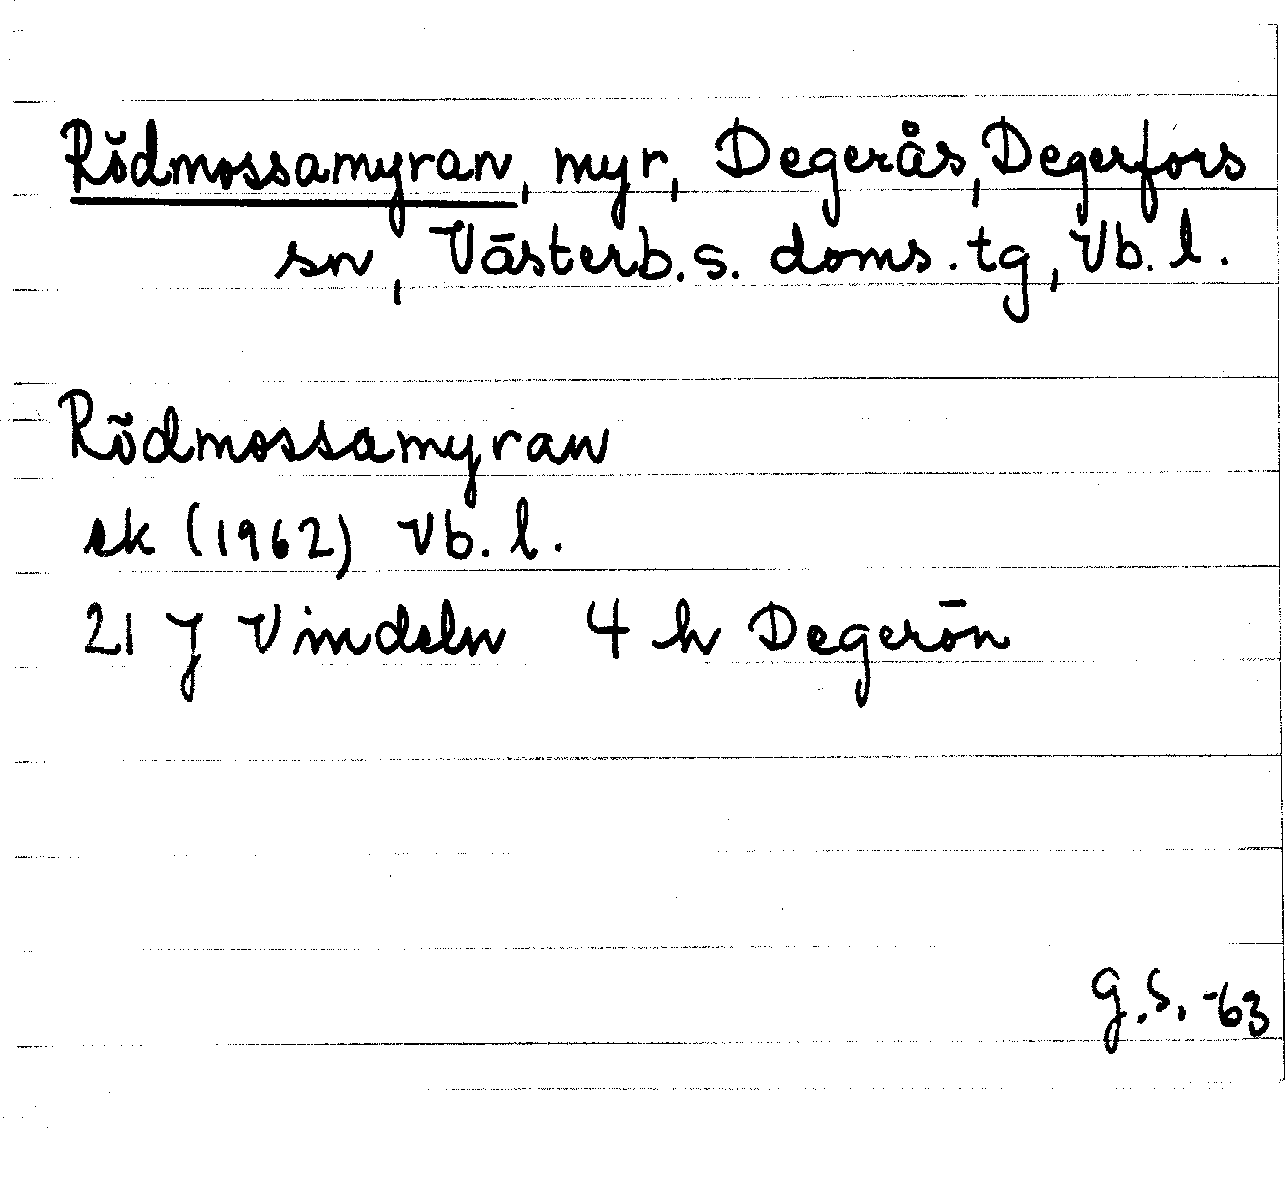 Rödmossamyran, myr, Degerås, Degerfors
sn, Västerb.s. doms.tg, Vb. l.
Rödmossamyran
ek (1962) Vb. l.
21 J Vindeln 4 h Degerön
G.S. -63